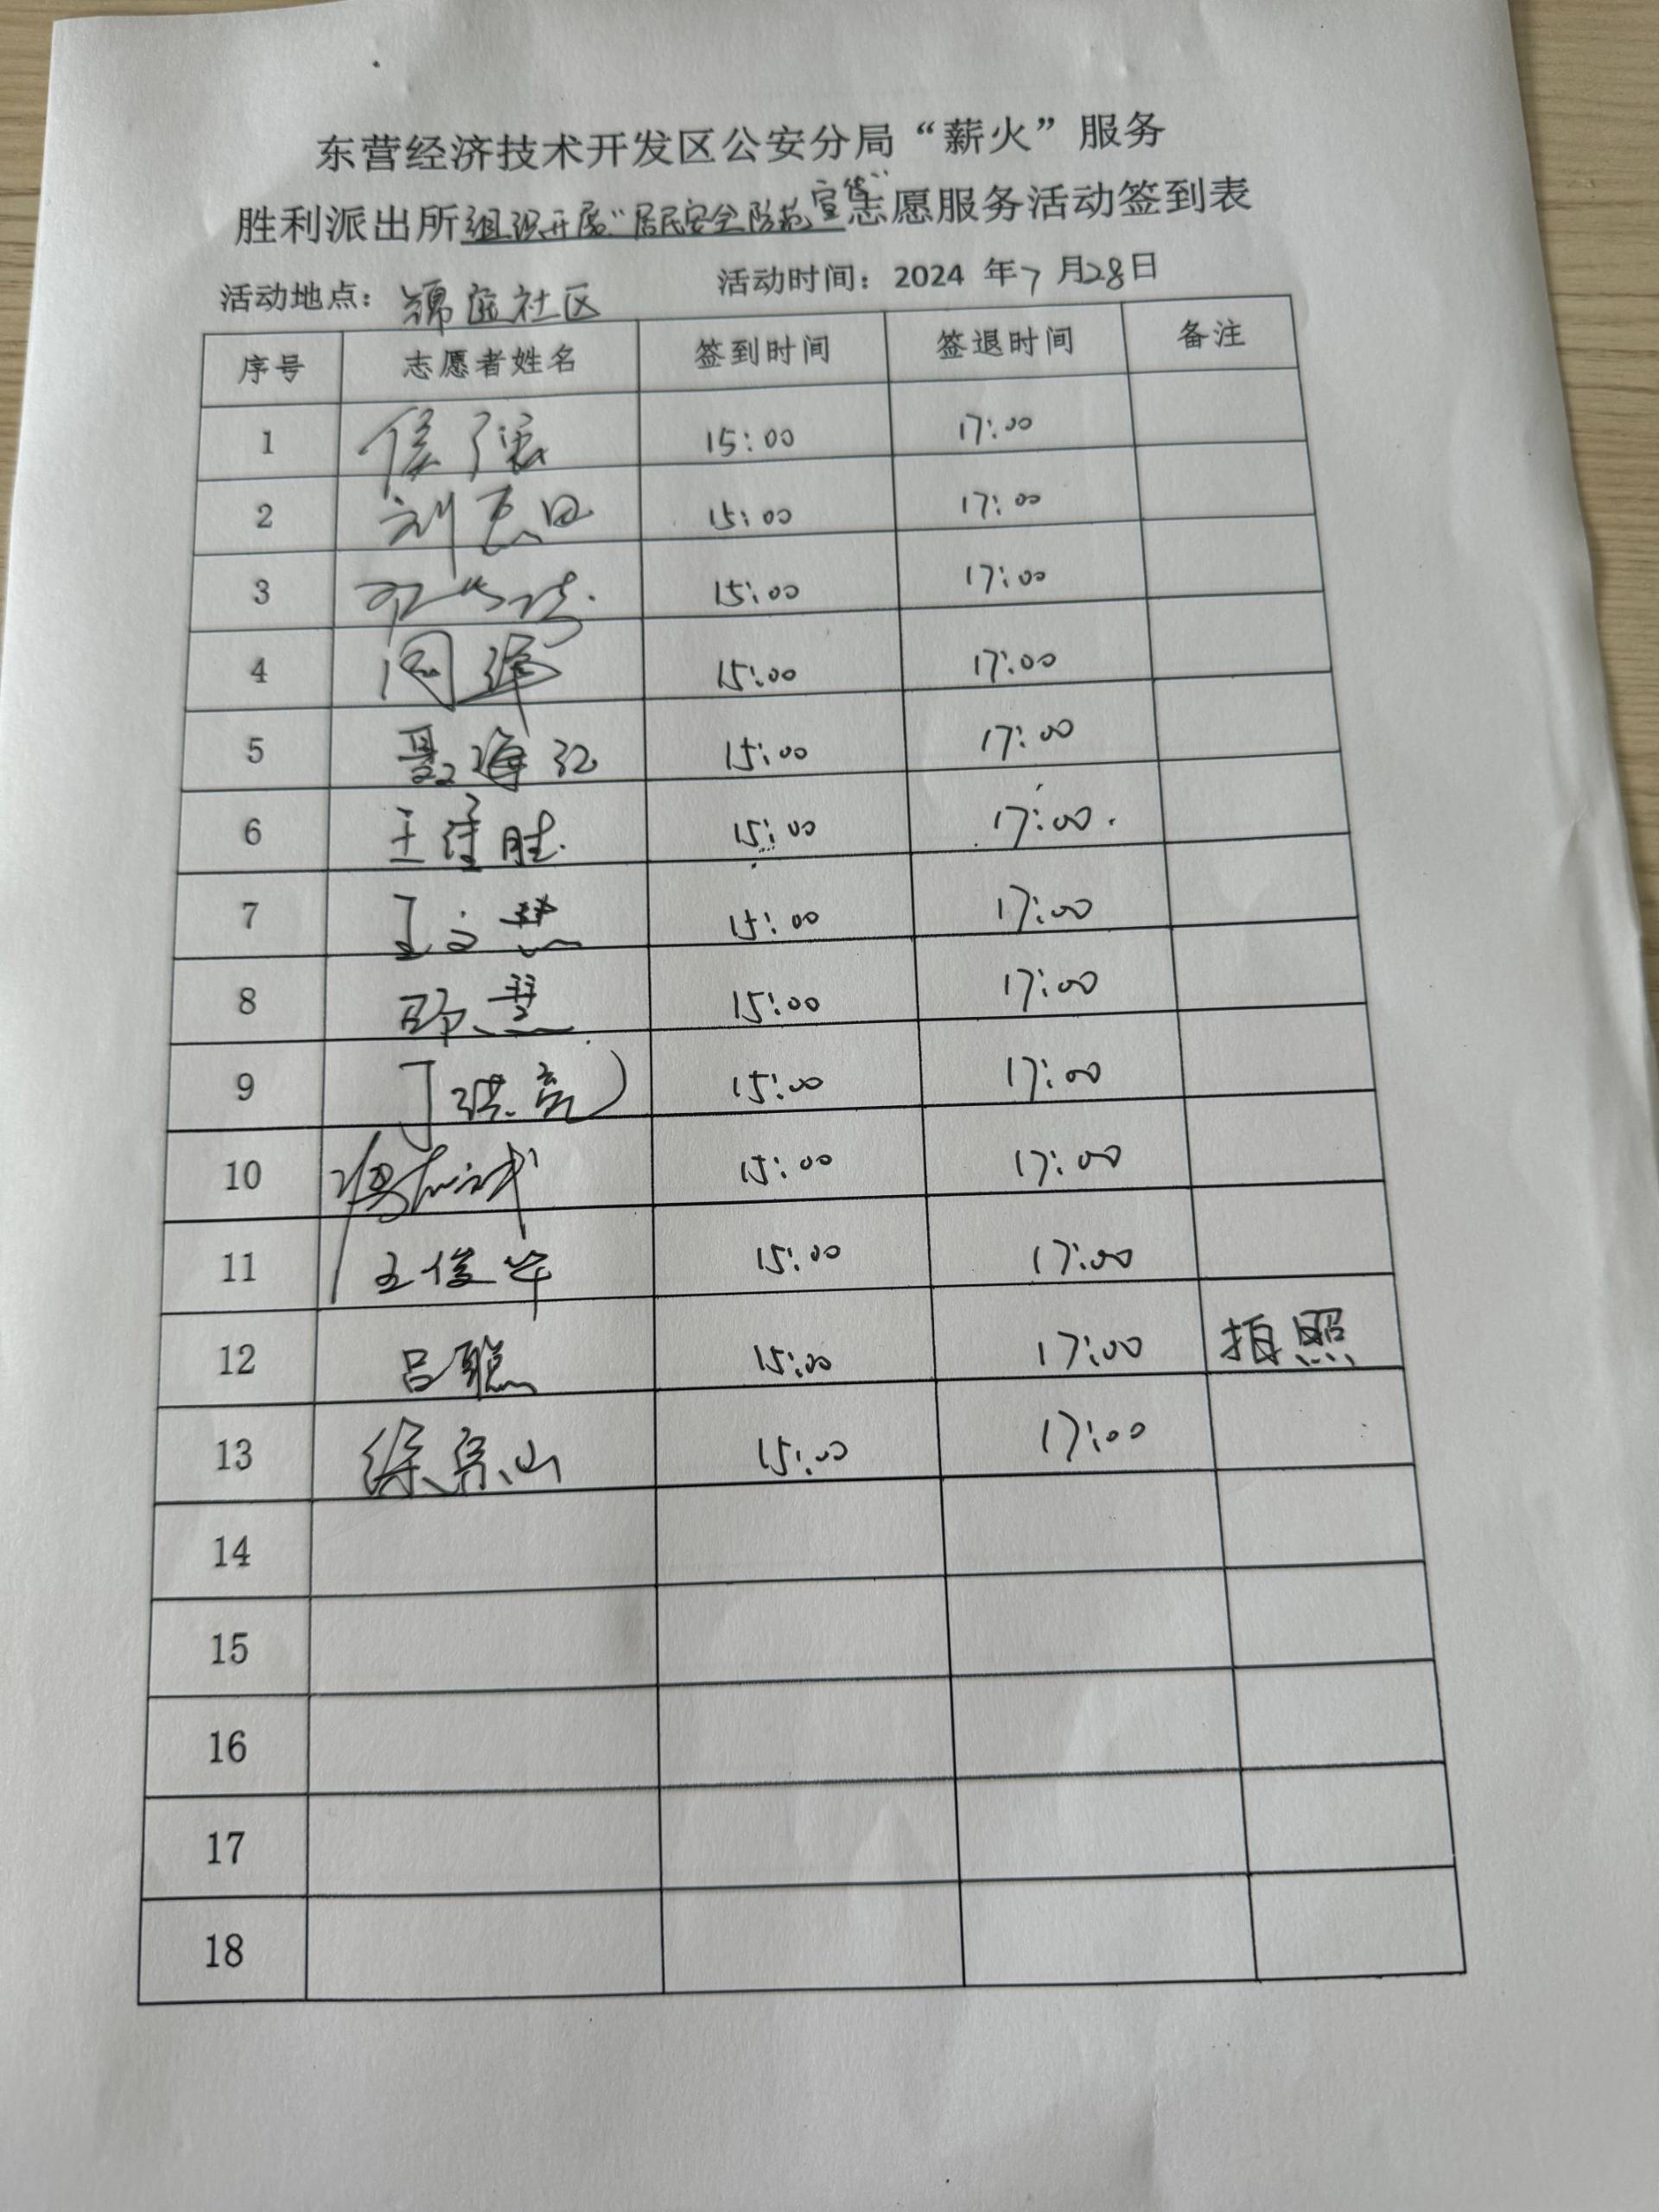 东营经济技术开发区公安分局“薪火”服务
胜利派出所组织开展“居民安全防范宣传”志愿服务活动签到表
活动地点：锦庭社区 活动时间：2024 年7月28日
序号 志愿者姓名 签到时间 签退时间 备注
1 侯 15:00 17:00
2 刘 15:00 17:00
3 15:00 17:00
4 15:00 17:00
5 聂海红 15:00 17:00
6 王 胜 15:00 17:00
7 王文慧 15:00 17:00
8 慧 15:00 17:00
9 丁洪亮 15:00 17:00
10 15:00 17:00
11 王俊华 15:00 17:00
12 吕聪 15:00 17:00 拍照
13 徐宗山 15:00 17:00
14
15
16
17
18